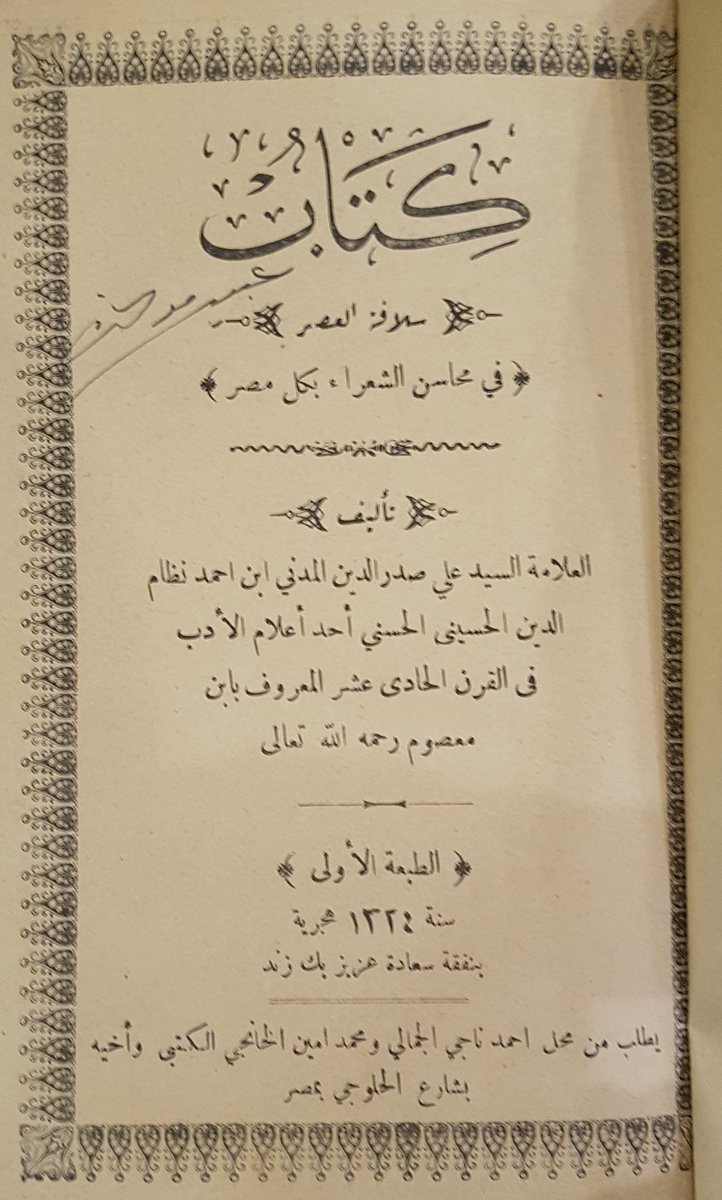 كِتَابُ
سلافة العصر
﴿ في محاسن الشعراء بكل مصر ﴾
تأليف
العلامة السيد علي صدر الدين المدني ابن احمد نظام
الدين الحسينى الحسني أحد أعلام الأدب
فى القرن الحادى عشر المعروف بابن
معصوم رحمه الله تعالى
﴿ الطبعة الأولى ﴾
سنة ١٣٢٤ هجرية
بنفقة سعادة عزيز بك زند
يطلب من محل احمد ناجي الجمالي ومحمد امين الخانجي الكتبى وأخيه
بشارع الحلوجي بمصر